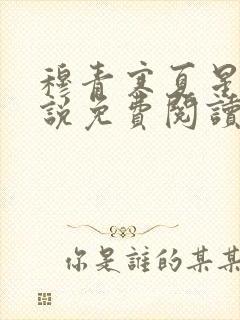 穆青寒夏星
說免費閱讀
你是誰的某某